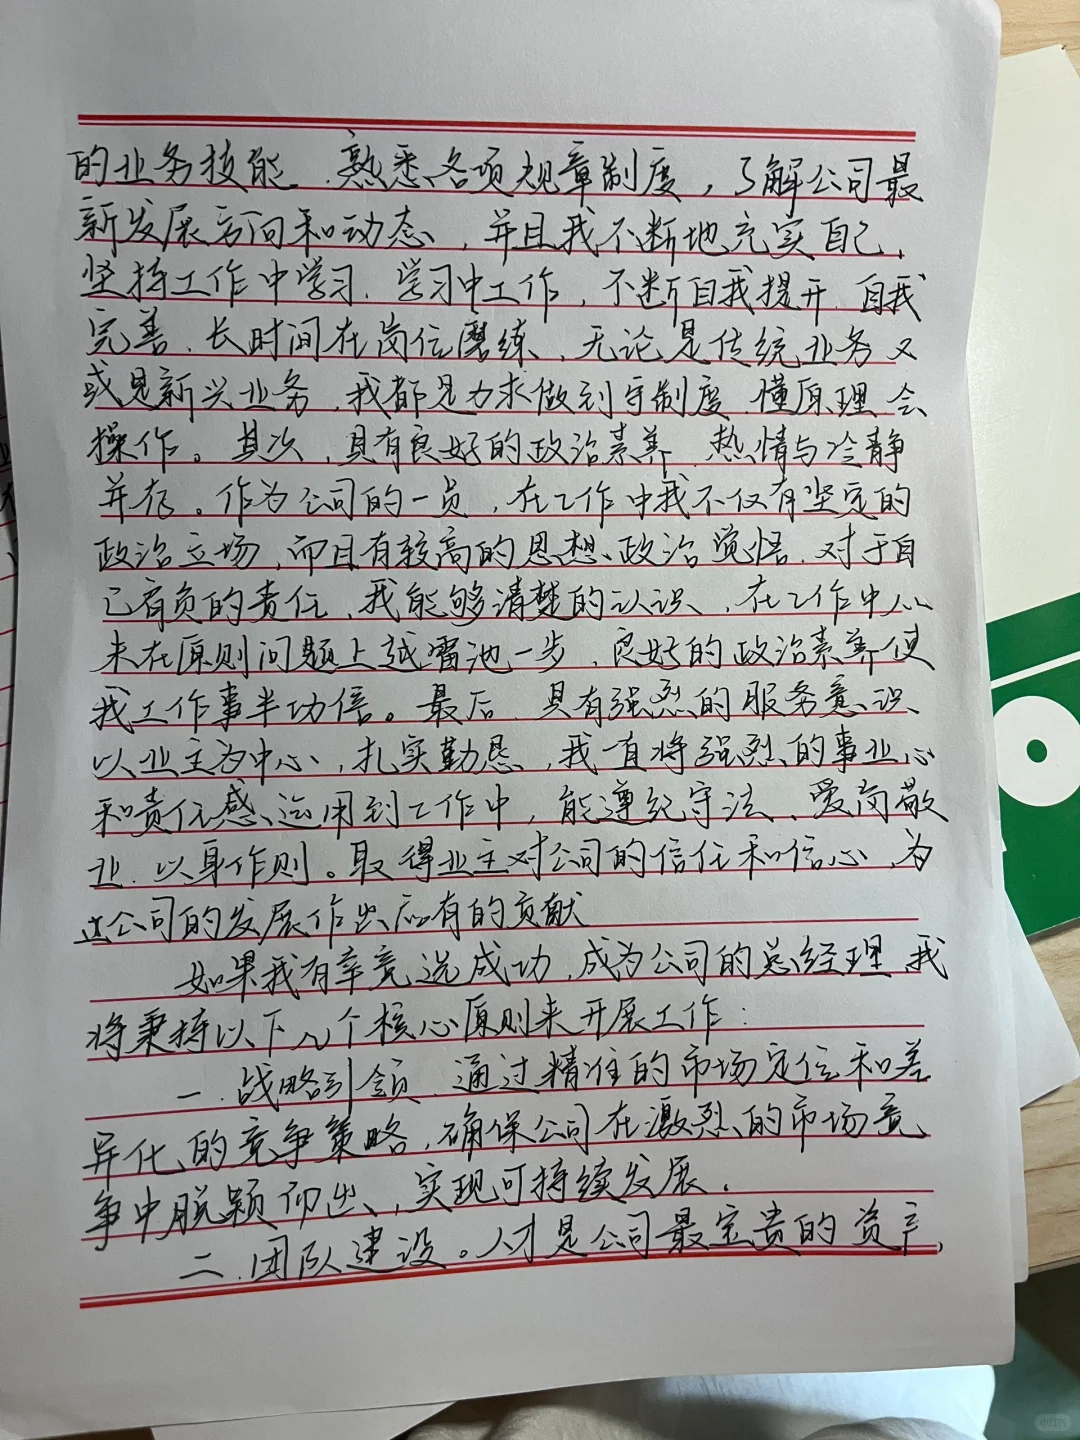 的业务技能、熟悉各项规章制度，了解公司最
新发展方向和动态，并且我不断地充实自己，
坚持工作中学习、学习中工作，不断自我提升、自我
完善、长时间在岗位磨练，无论是传统业务又
或是新兴业务，我都是力求做到守制度、懂原理、会
操作。其次，具有良好的政治素养、热情与冷静
并存。作为公司的一员，在工作中我不仅有坚定的
政治立场，而且有较高的思想、政治觉悟，对于自
己肩负的责任，我能够清楚的认识，在工作中从
未在原则问题上越雷池一步，良好的政治素养使
我工作事半功倍。最后，具有强烈的服务意识、
以业主为中心，扎实勤恳，我一直将强烈的事业心
和责任感运用到工作中，能遵纪守法、爱岗敬
业、以身作则。取得业主对公司的信任和信心，为
这公司的发展作出应有的贡献
如果我有幸竞选成功，成为公司的总经理，我
将秉持以下几个核心原则来开展工作：
一、战略引领，通过精准的市场定位和差
异化的竞争策略，确保公司在激烈的市场竞
争中脱颖而出，实现可持续发展。
二、团队建设。人才是公司最宝贵的资产，